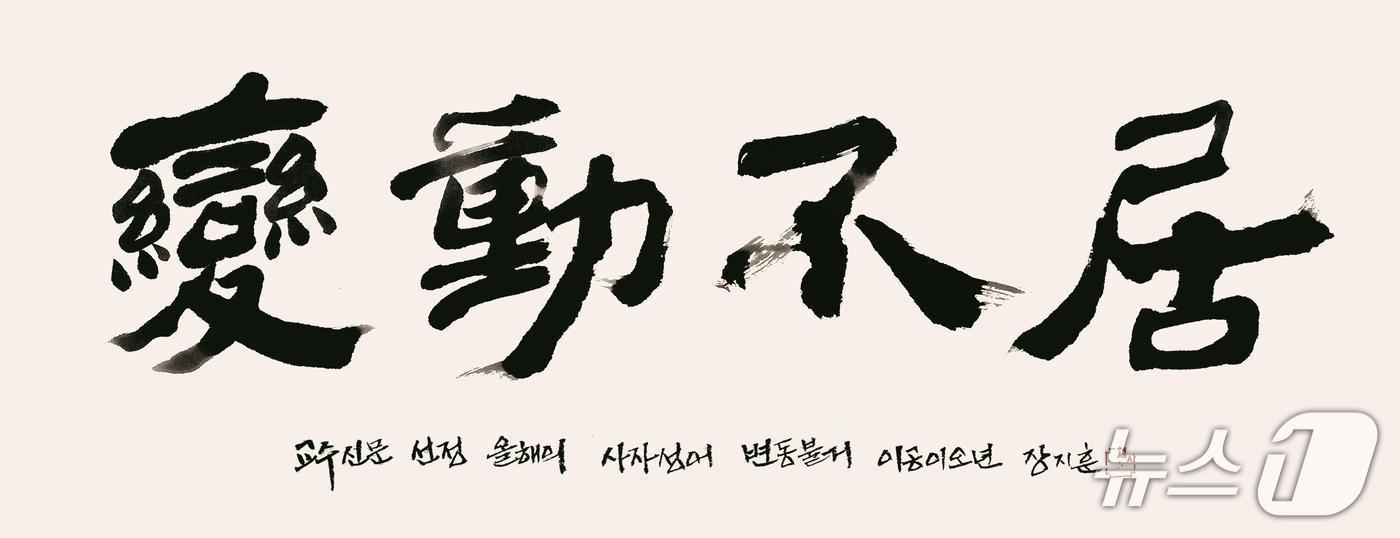 變動不居
교수신문 선정 올해의 사자성어 변동불거 이공이오년 장지훈
뉴스1